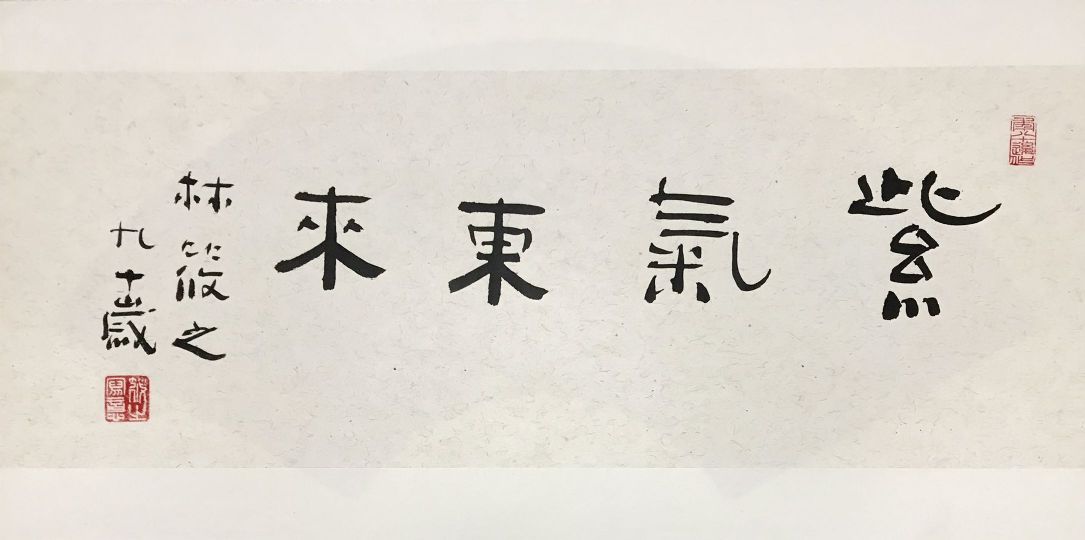 紫氣東來
林筱之
九十歲